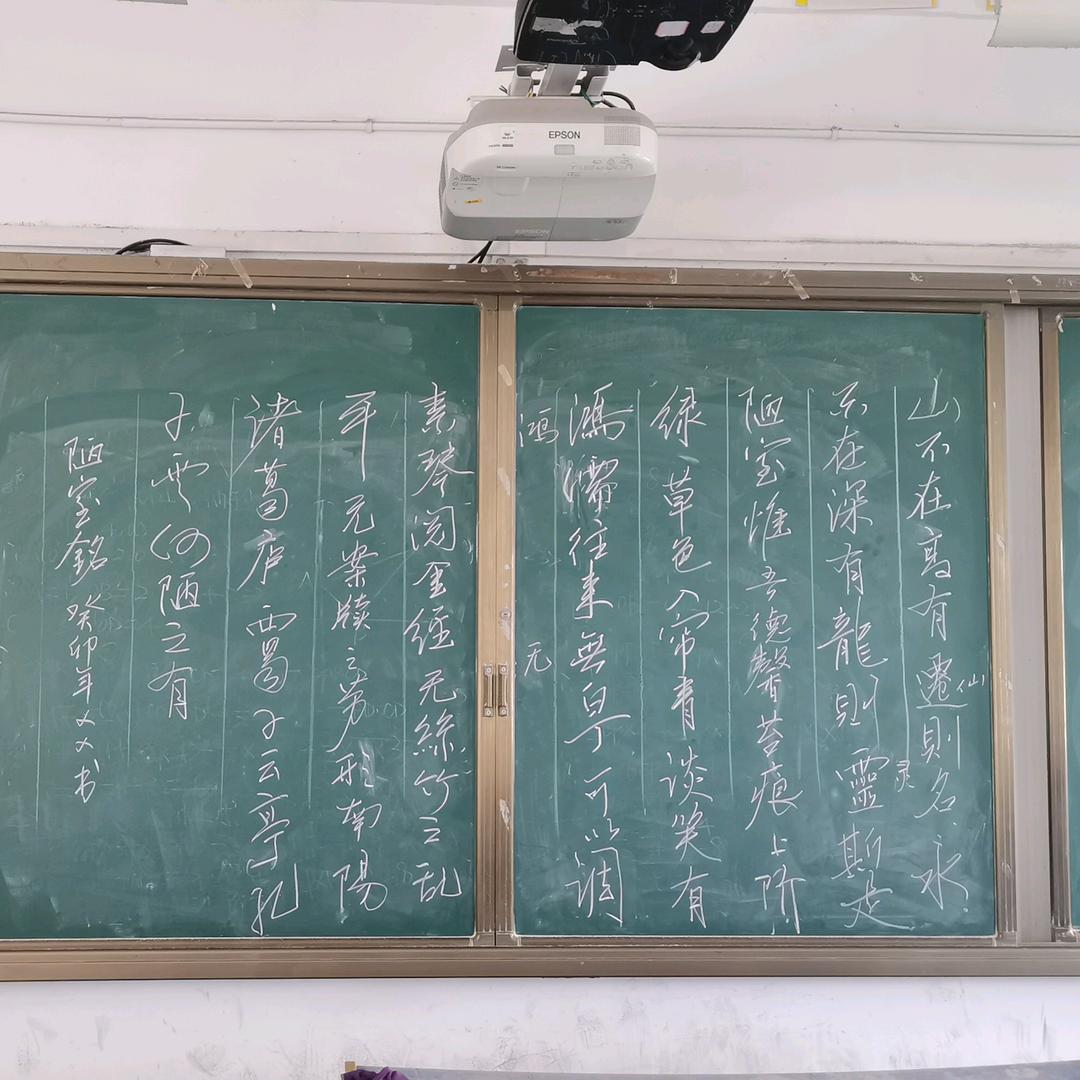 EPSON
EPSON
山不在高有遷則名水
仙
不在深有龍則靈斯是
灵
陋室惟吾德馨苔痕上阶
绿草色入帘青谈笑有
鴻濡往来無白丁可以调
鸿
无
素琴阅金經无絲竹之乱
耳无案牍之劳形南陽
诸葛庐西蜀子云亭孔
子雲何陋之有
陋室銘癸卯年乂乂书